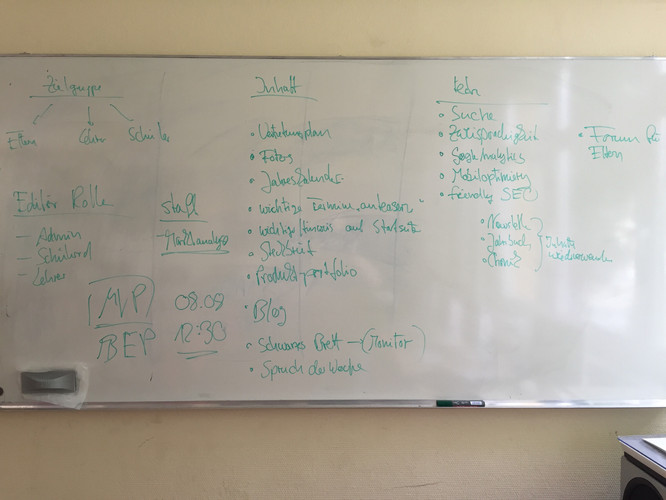 Zielgruppe
Eltern Lehrer Schüler
Editor Rolle
— Admin
— Schülerrd
— Lehrer
Marktanalyse
(MVP) 08.09
BEP 12:30
Inhalt
• Vertretungsplan
• Fotos
• Jahreskalender
• wichtige Termine "anteasern"
• wichtige Hinweis auf Startseite
• Steckbrief
• Produktportfolio
• Blog
• Schwarzes Brett — (Monitor)
• Spruch der Woche
techn
• Suche
• Zweisprachigkeit
• Google Analytics
• Mobiloptimierung
• friendly SEO
• Newsletter
• Jahrbuch
• Chronik
Inhalte
wiederverwenden
• Forum für
Eltern